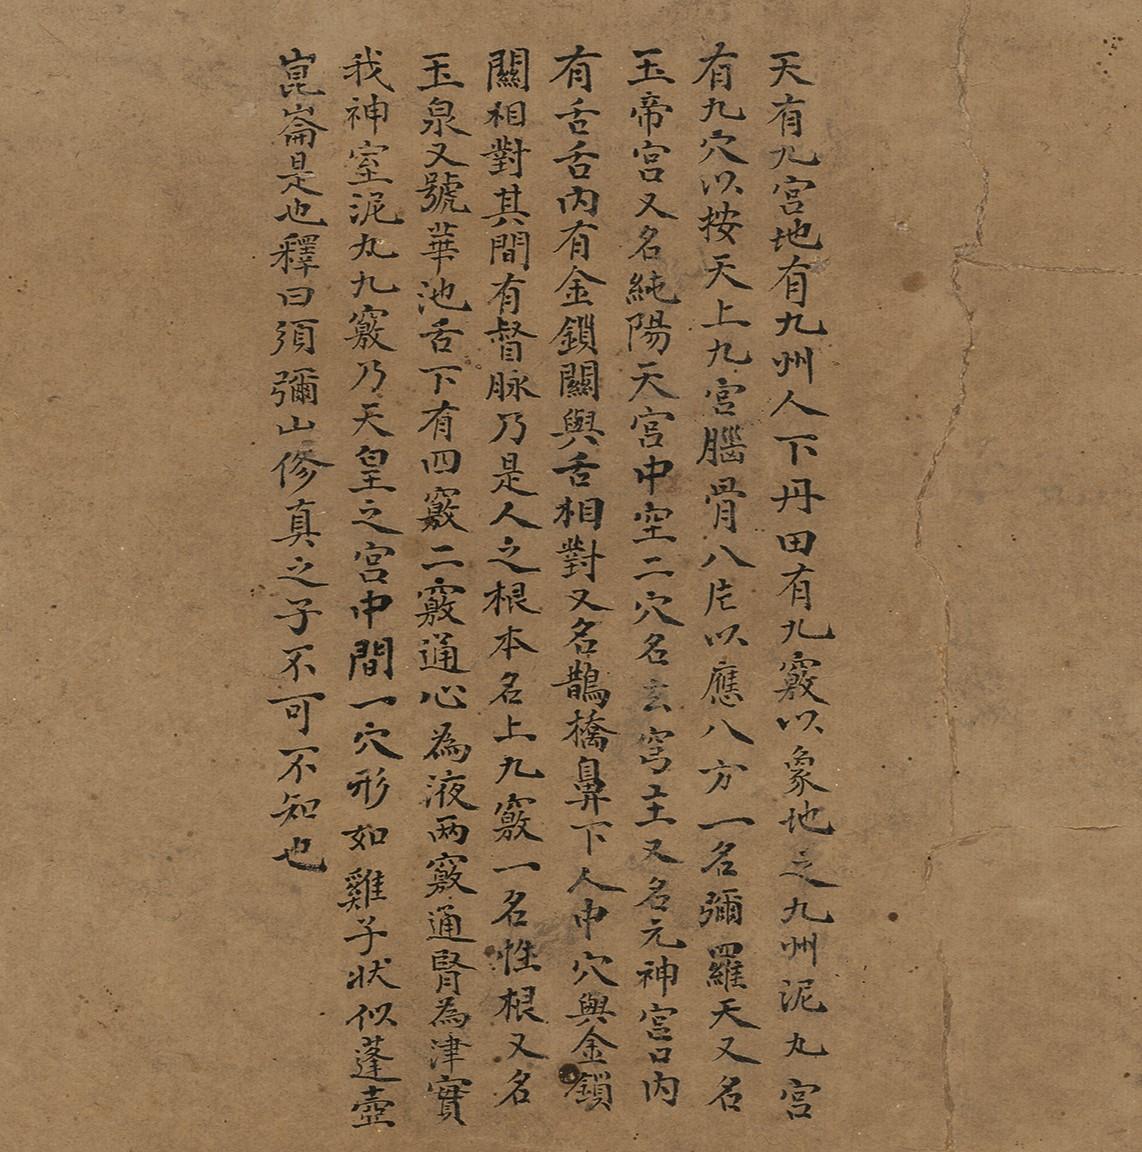 天有九宮地有九州人下丹田有九竅以象地之九州泥丸宮
有九穴以按天上九宮腦骨八片以應八方一名彌羅天又名
玉帝宮又名純陽天宮中空二穴名玄穹主又名元神宮口內
有舌舌內有金鎖關與舌相對又名鵲橋鼻下人中穴與金鎖
關相對其間有督脉乃是人之根本名上九竅一名性根又名
玉泉又號華池舌下有四竅二竅通心為液两竅通腎為津實
我神室泥丸九竅乃天皇之宮中間一穴形如雞子状似蓬壺
崑崙是也釋曰須彌山修真之子不可不知也